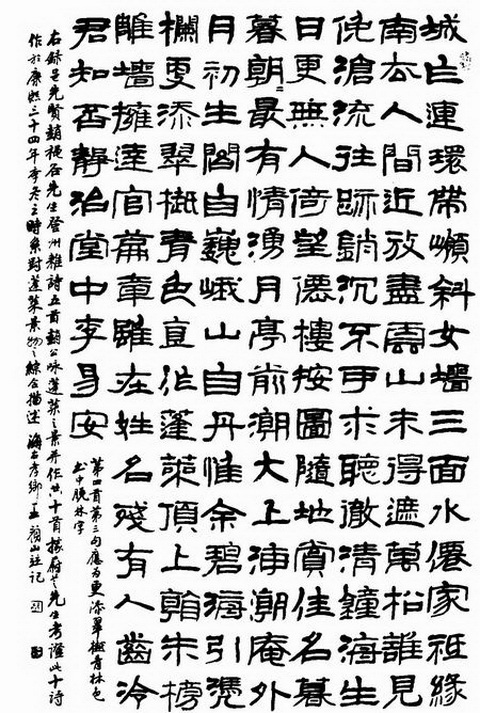 城亡連環帶嶼斜女墻三面水僊家祗緣
南去人間近放盡雲山未得遮萬松誰見
滄流往跡銷沉不可求聽徹清鐘海生
日更無人倚望僊樓按圖隨地賞佳名暮
暮朝〻最有情湧月亭前潮大上沖潮庵外
月初生閣自巍峨山自丹惟余碧海引憑
欄更添翠樾青色宜作蓬萊頂上翰朱榜
雕墻擁達官篇章雖在姓名殘有人齒冷
君知否靜治堂中李易安
第四首第三句應為更添翠樾青林色
書中脫林字
右錄是先賢趙谷先生登州雜詩五首趙公咏蓬萊之景并作共十首據蔚芝先生考證此十詩
作於康熙三十四年季冬之時集對蓬萊景物之綜合描述 海右孝鄉王顏山并記